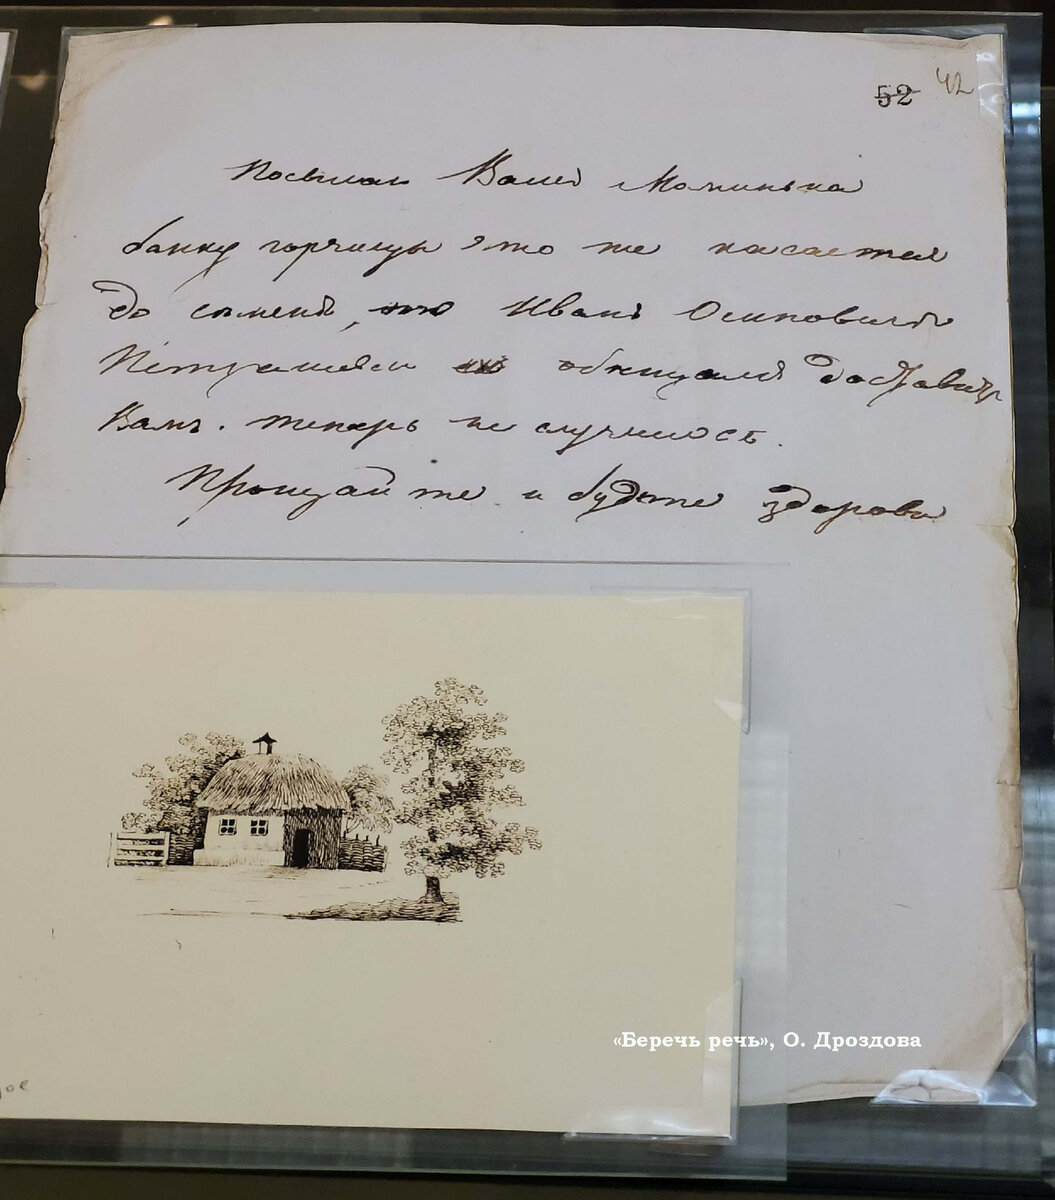 52 42
Посылаю Вамъ Маминька
банку горчицы что же касается
до сѣменъ, то Иванъ Осиповичъ
обѣщалъ доставить
Вамъ. теперь не случилось.
Прощайте и будьте здорови
«Беречь речь», О. Дроздова